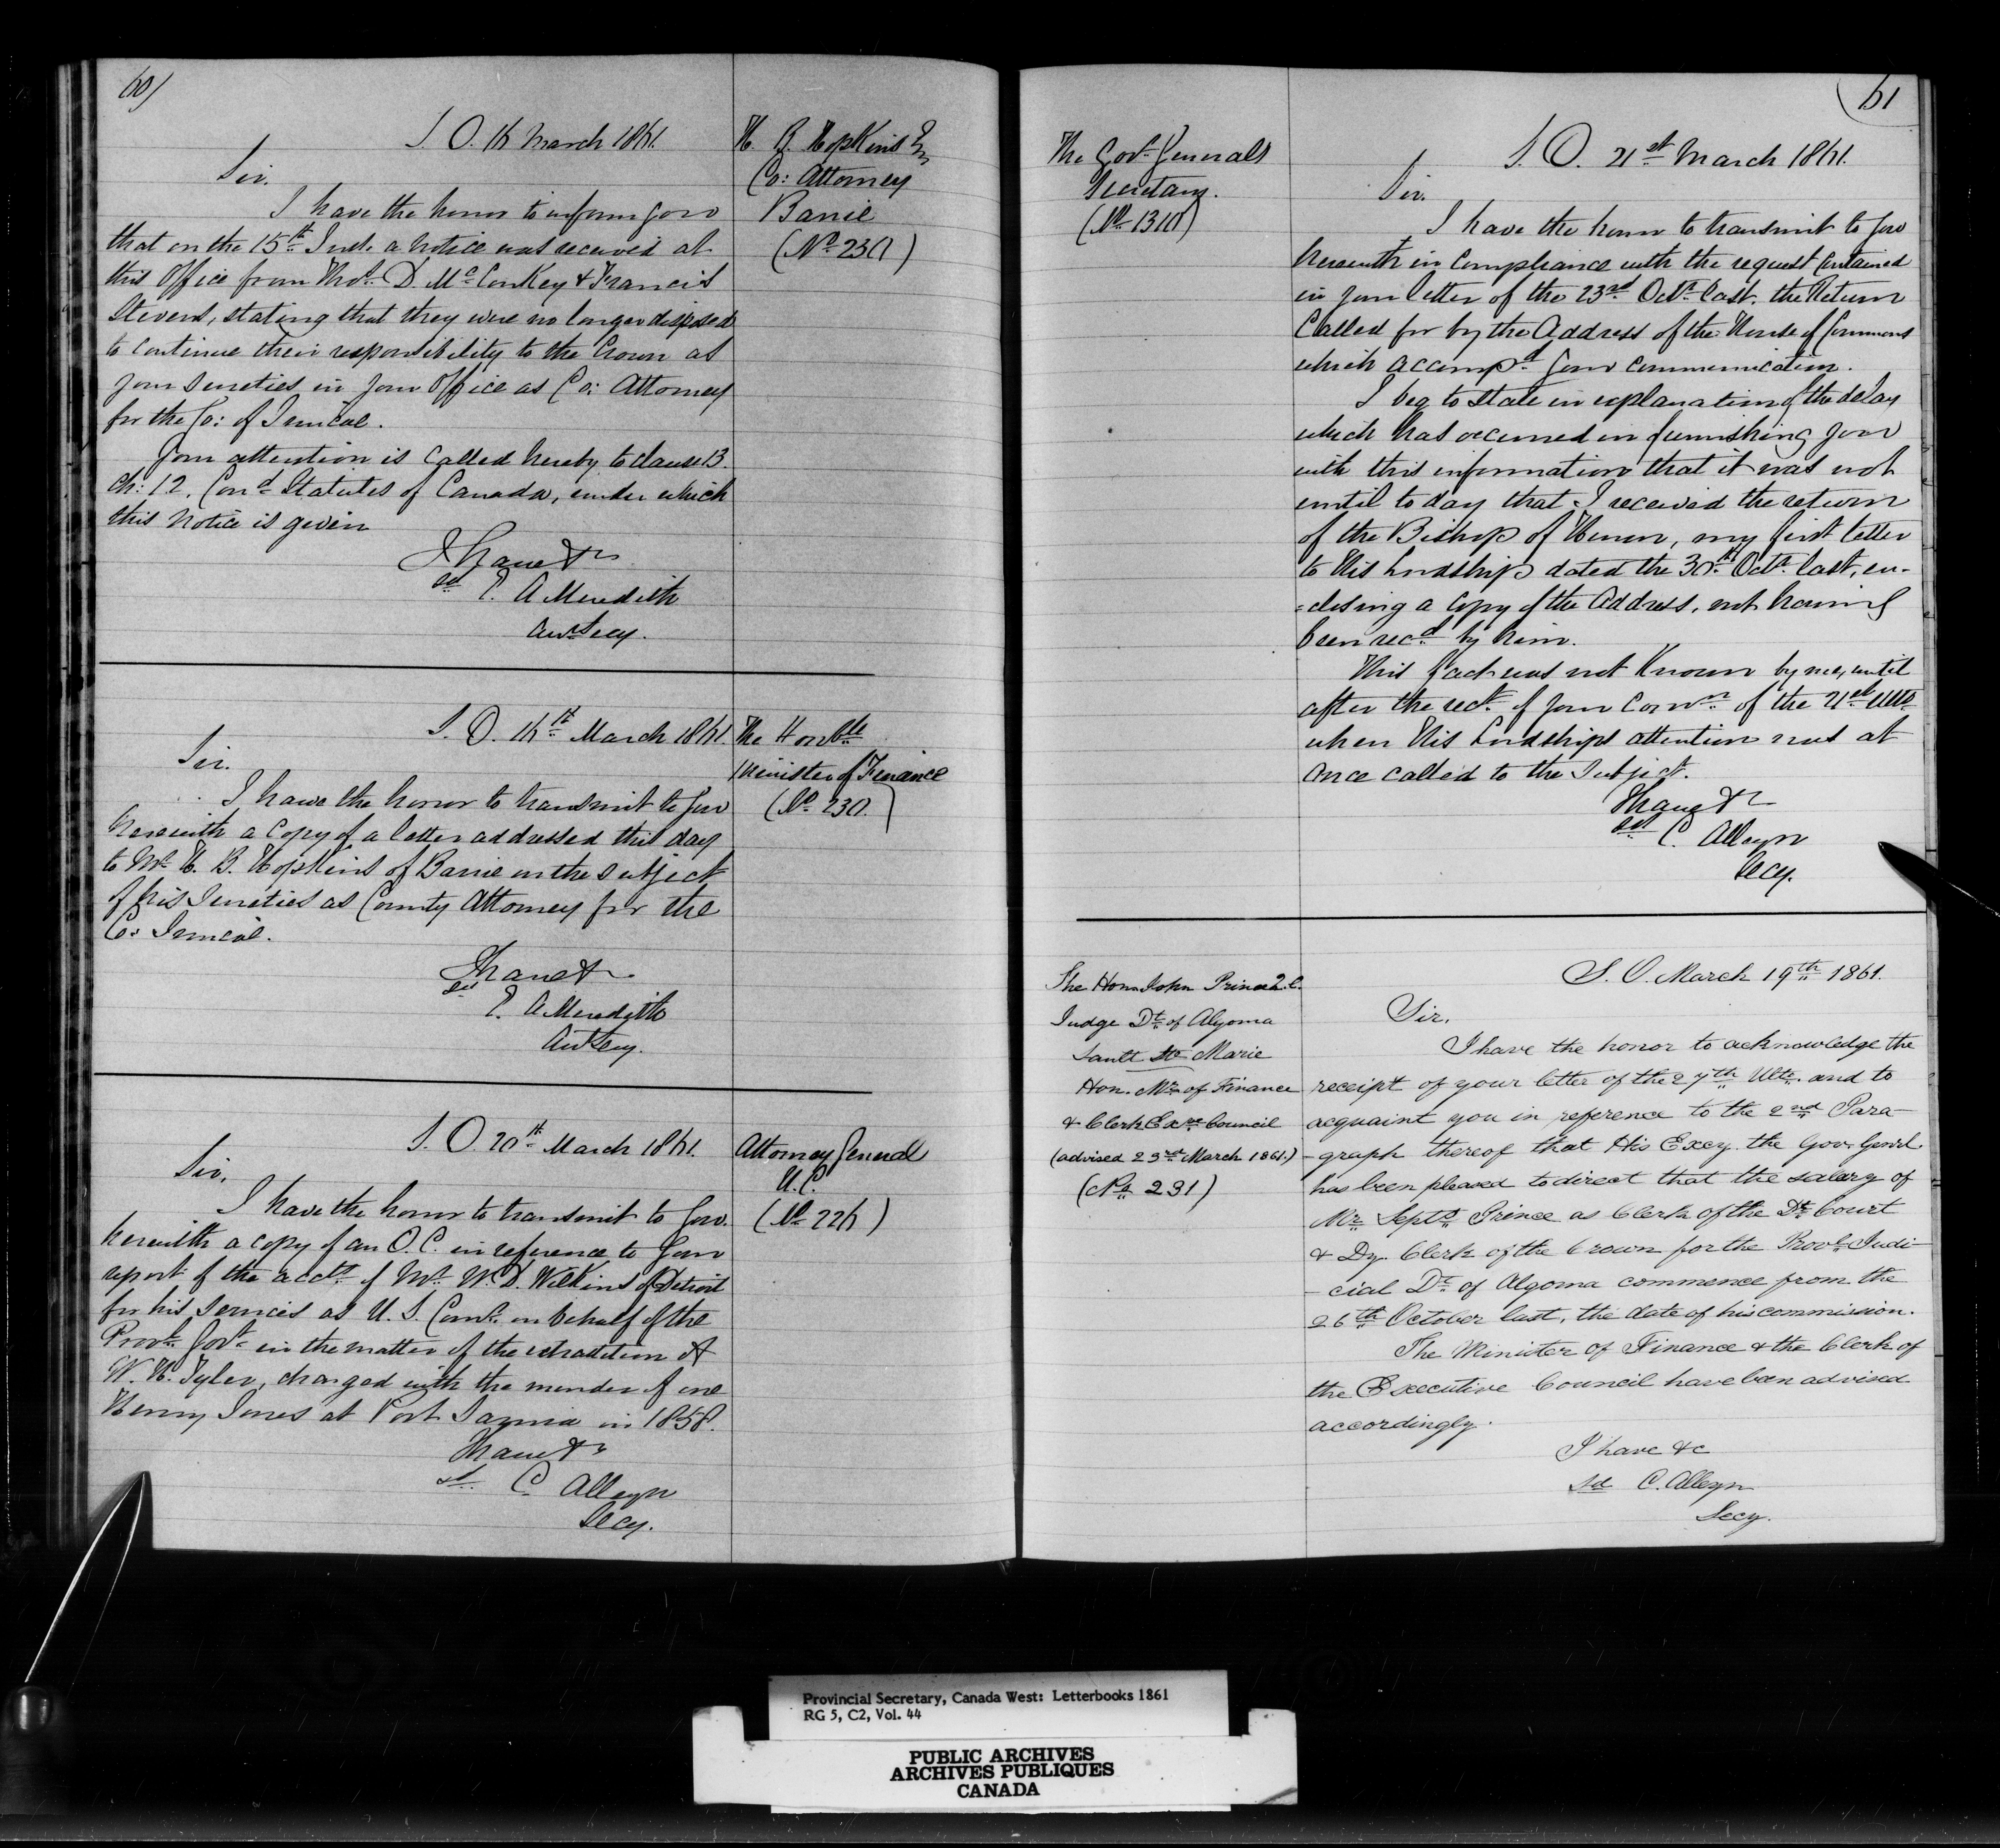 60)
S. O. 16 March 1861.
H. B. Hopkins Esq
Co: Attorney
Barrie
(No 230)
Sir.
I have the honor to inform you
that on the 15th Inst. a notice was received at
this Office from Thos. D. McConkey & Francis
Stevens, stating that they were no longer disposed
to continue their responsibility to the Crown as
your sureties in your Office as Co: Attorney
for the Co: of Simcoe.
Your attention is called hereby to clause 13.
Ch: 12. Cond Statutes of Canada, under which
this notice is given
I have &c
sd E. A Meredith
Asst Secy.
S. O. 16th March 1861.
The Honble
Minister of Finance
(No 230.)
Sir.
I have the honor to transmit to you
herewith a copy of a letter addressed this day
to Mr H. B. Hopkins of Barrie on the subject
of his Sureties as County Attorney for the
Co: Simcoe.
I have &c
sd E. A Meredith
Asst Secy.
S. O. 20th March 1861.
Attorney General
U.C.
(No 226)
Sir,
I have the honor to transmit to you
herewith a copy of an O. C. in reference to your
report of the acct of Mr. W. D. Wilkins of Detroit
for his services as U. S. Comr. on behalf of the
Provl. Govt. in the matter of the extradition of
W. H. Tyler, charged with the murder of one
Henry Jones at Port Sarnia in 1858.
I have &c
sd C. Alleyn
Secy.
61
The Govr. Generals
Secretary.
(No 1310)
S. O. 21st March 1861.
Sir.
I have the honor to transmit to you
herewith in compliance with the request contained
in your letter of the 23rd Octr. last. the Return
Called for by the Address of the House of Commons
which accompd. your communication.
I beg to state in explanation of the delay
which has occurred in furnishing you
with this information that it was not
until to day that I received the return
of the Bishop of Huron, my first letter
to His Lordship dated the 30th Octr. last, en-
=closing a copy of the Address, not having
been recd by him.
This fact was not known by me, until
after the rect. of your Comn of the 21st Ulto
when His Lordships attention was at
once called to the Subject.
I have &c
sd C. Alleyn
Secy.
The Hon. John Prince Q.C.
Judge Dt. of Algoma
Sault Ste Marie
Hon. Mr. of Finance
& Clerk Exve Council
(advised 23rd March 1861.)
(No 231)
S. O. March 19th 1861.
Sir,
I have the honor to acknowledge the
receipt of your letter of the 27th Ulto. and to
acquaint you in reference to the 2nd Para-
-graph thereof that His Excy. the Gov. Genrl.
has been pleased to direct that the salary of
Mr Septs. Prince as Clerk of the Dt. Court
& Dy. Clerk of the Crown for the Provl. Judi-
-cial Dt. of Algoma commence from the
26th October last, the date of his commission.
The Minister of Finance & the Clerk of
the Executive Council have been advised
accordingly.
I have &c
sd C. Alleyn
Secy.
Provincial Secretary, Canada West: Letterbooks 1861
RG 5, C2, Vol. 44
PUBLIC ARCHIVES
ARCHIVES PUBLIQUES
CANADA